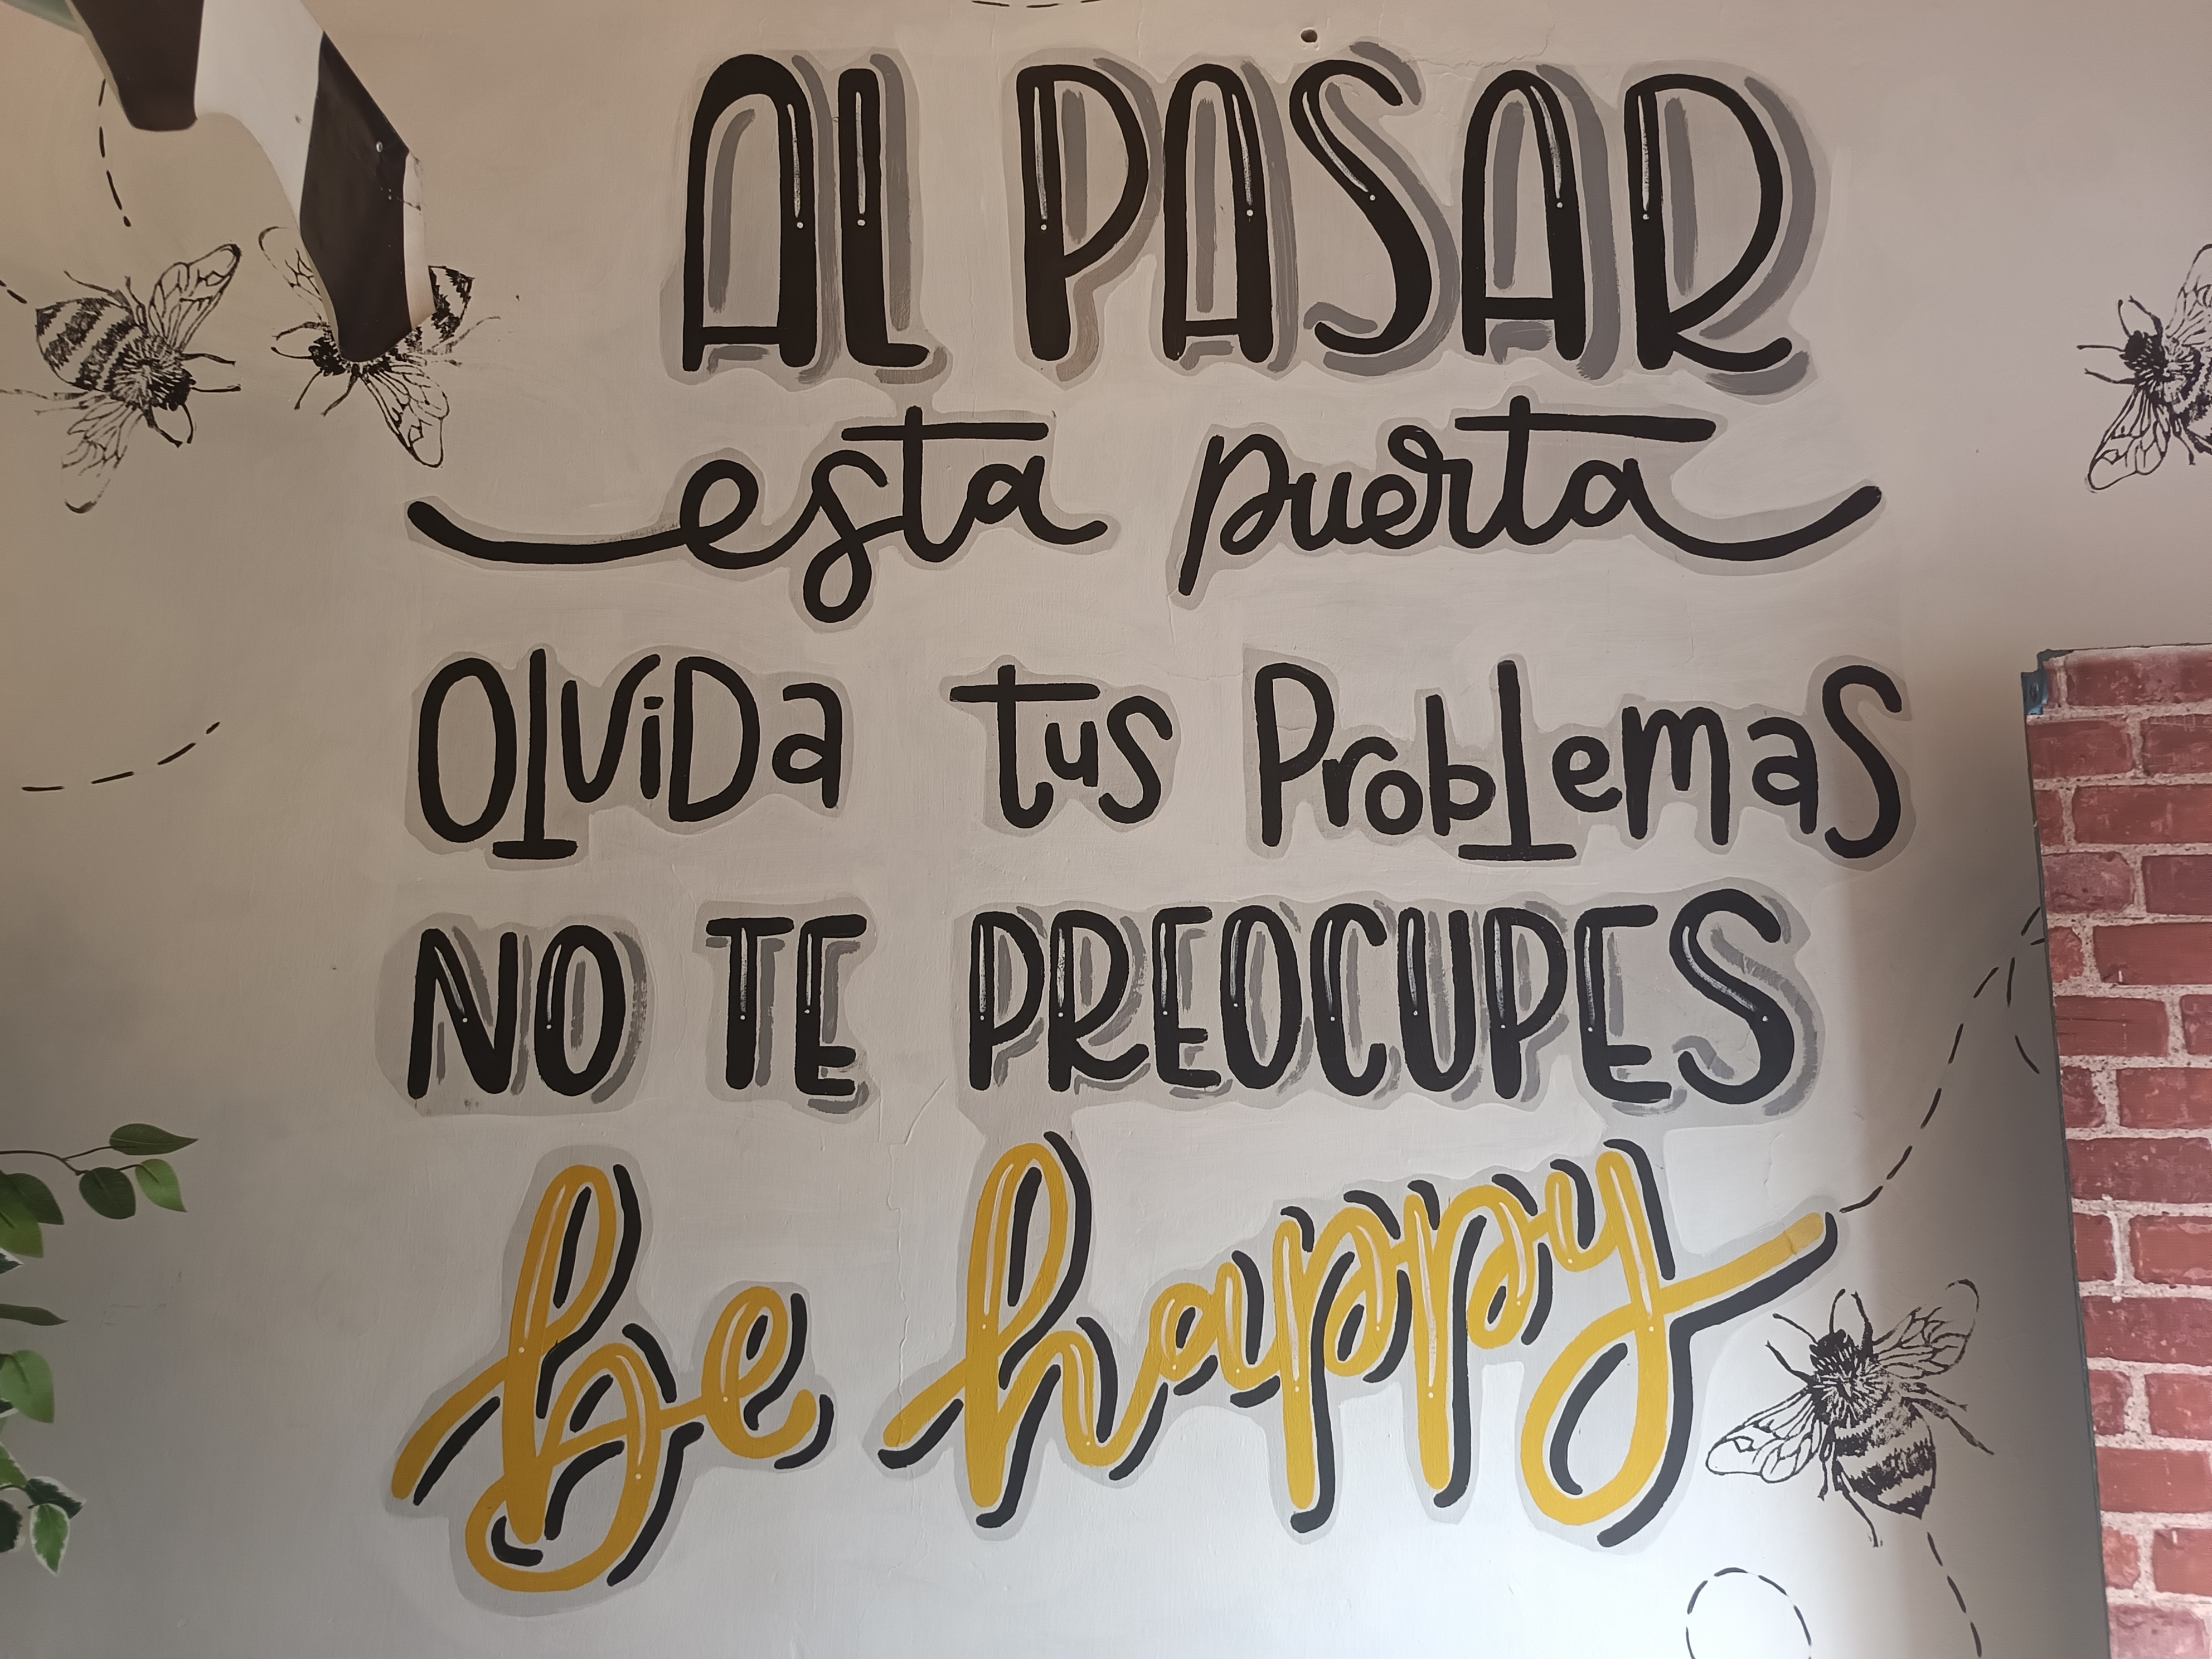 AL PASAR
esta puerta
Olvida tus Problemas
NO TE PREOCUPES
be happy